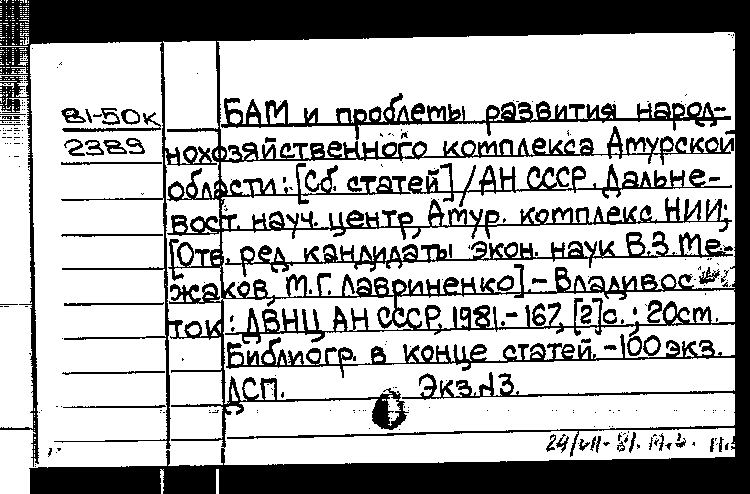 81-50к
2389
БАМ и проблемы развития народ-
нохозяйственного комплекса Амурской
области: [Сб. статей] / АН СССР. Дальне-
вост. науч. центр, Амур. комплекс. НИИ;
[Отв. ред. кандидаты экон. наук В.З. Ме-
жаков, М.Г. Лавриненко]. – Владивос
ток: ДВНЦ АН СССР, 1981. – 167, [2] с.; 20 cm.
Библиогр. в конце статей. – 100 экз.
ДСП. Экз. №3.